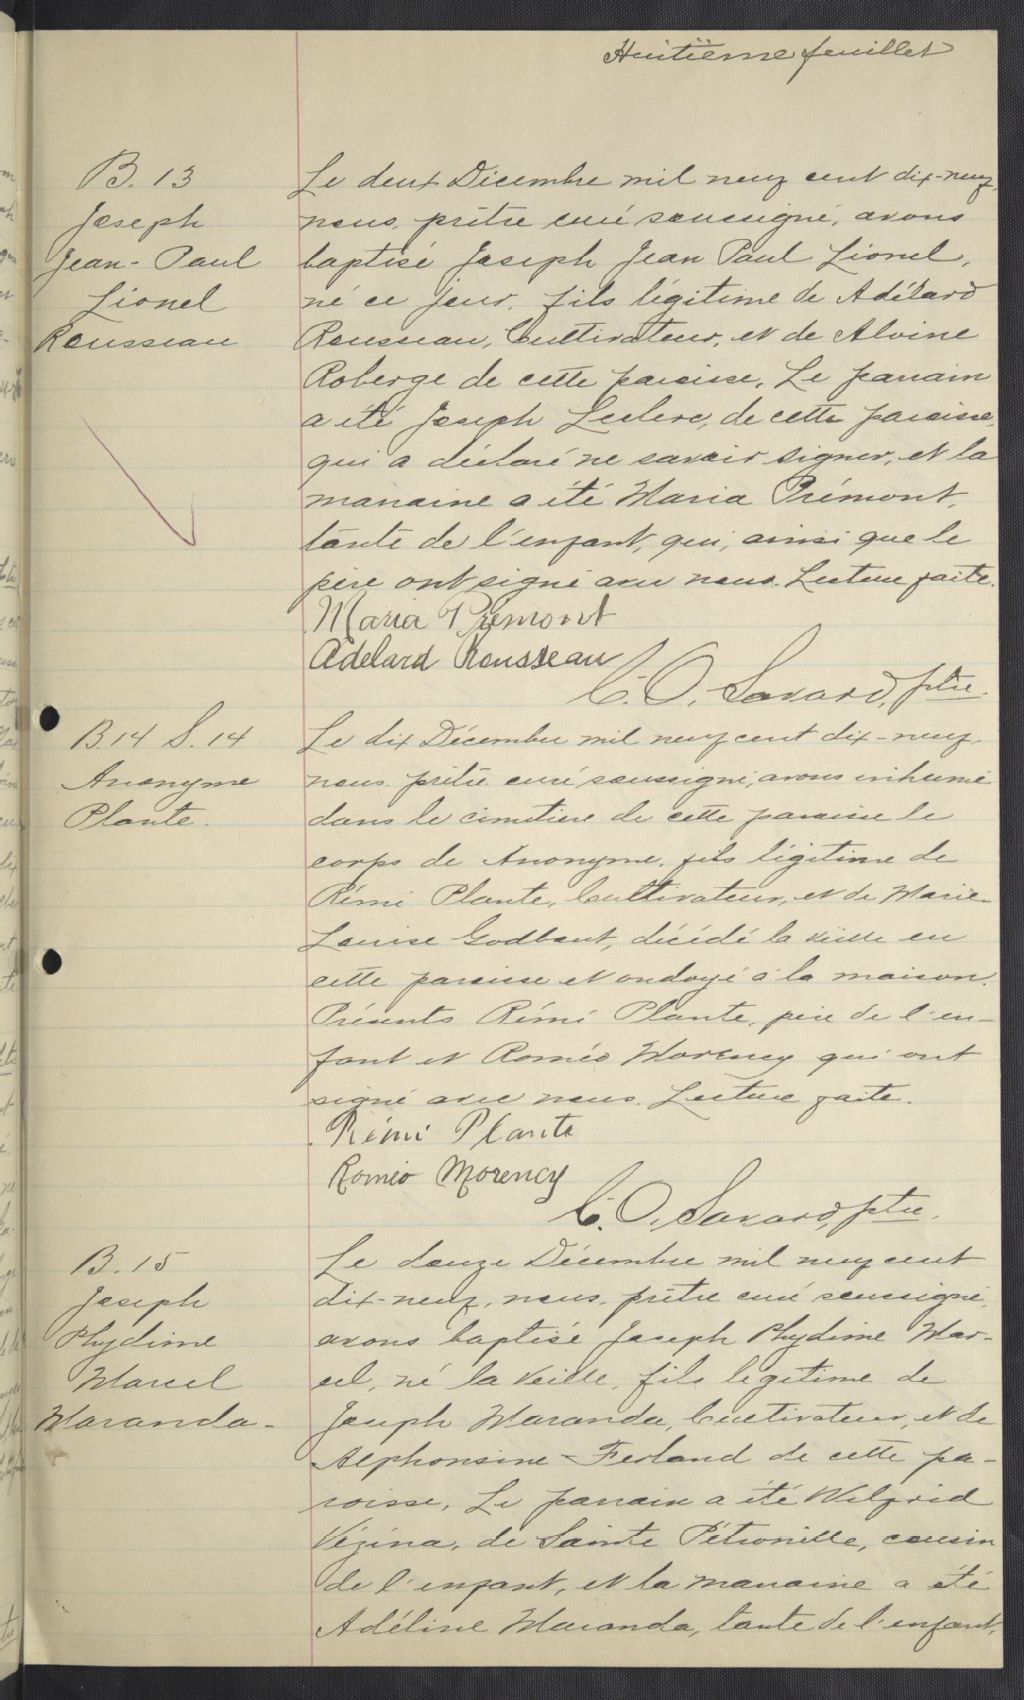 Huitième feuillet
B. 13
Joseph
Jean-Paul
Lionel
Rousseau
Le deux Décembre mil neuf cent dix-neuf,
nous, prêtre curé soussigné, avons
baptisé Joseph Jean Paul Lionel,
né ce jour, fils légitime de Adélard
Rousseau, Cultivateur, et de Alvine
Roberge de cette paroisse. Le parrain
a été Joseph Leclerc, de cette paroisse,
qui a déclaré ne savoir signer, et la
marraine a été Maria Prémont,
tante de l'enfant, qui, ainsi que le
père ont signé avec nous. Lecture faite.
Maria Prémont
Adelard Rousseau
C. O. Savard, ptre.
B. 14 S. 14
Anonyme
Plante.
Le dix Décembre mil neuf cent dix-neuf,
nous, prêtre curé soussigné, avons inhumé
dans le cimetière de cette paroisse le
corps de Anonyme, fils légitime de
Rémi Plante, Cultivateur, et de Marie-
Louise Godbout, décédé la veille en
cette paroisse et ondoyé à la maison.
Présents Rémi Plante, père de l'en-
fant et Roméo Morency qui ont
signé avec nous. Lecture faite.
Rémi Plante
Roméo Morency
C. O. Savard, ptre.
B. 15
Joseph
Phydime
Marcel
Maranda-
Le douze Décembre mil neuf cent
dix-neuf, nous, prêtre curé soussigné,
avons baptisé Joseph Phydime Mar-
cel, né la veille, fils légitime de
Joseph Maranda, Cultivateur, et de
Alphonsine Ferland de cette pa-
roisse. Le parrain a été Wilfrid
Vézina, de Sainte Pétronille, cousin
de l'enfant, et la marraine a été
Adéline Maranda, tante de l'enfant,